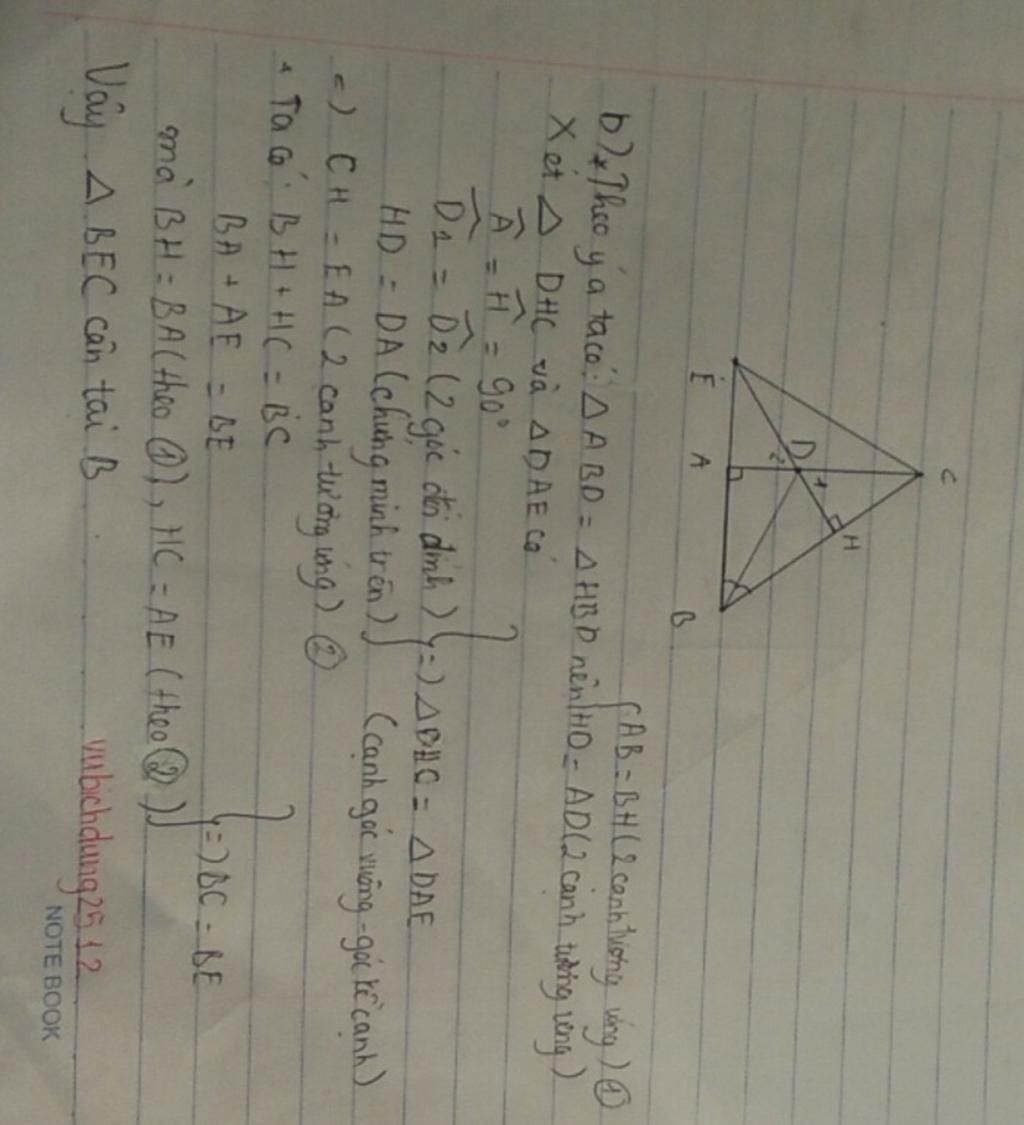 C
H
D
1
2
E
A
B
b) * Theo ý a ta có: △ABD = △HBD nên { AB = BH (2 cạnh tương ứng) ①
HD = AD (2 cạnh tương ứng)
Xét △ DHC và △DAE có
Â = Ĥ = 90°
D̂1 = D̂2 (2 góc đối đỉnh) } => △DHC = △DAE
HD = DA (chứng minh trên) (cạnh góc vuông - góc kề cạnh)
=) CH = EA (2 cạnh tương ứng) ②
* Ta có: BH + HC = BC
BA + AE = BE } =) BC = BE
mà BH = BA (theo ①), HC = AE (theo ②)
Vậy △ BEC cân tại B
vubichdung2512
NOTE BOOK